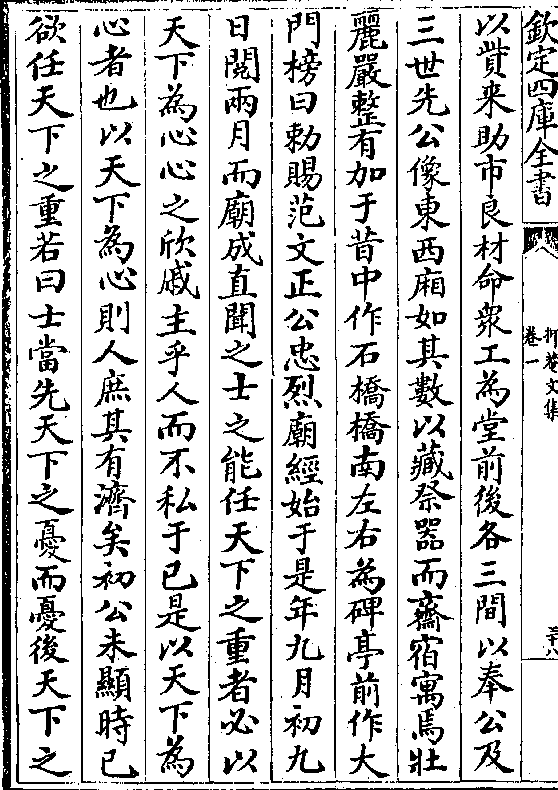 欽定四庫全書
卷一
三十八
以貲来助市良材命衆工為堂前後各三間以奉公及
三世先公像東西廂如其數以藏祭器而齋宿寓焉壯
麗嚴整有加于昔中作石橋橋南左右為碑亭前作大
門榜曰勅賜范文正公忠烈廟經始于是年九月初九
日閲兩月而廟成直聞之士之能任天下之重者必以
天下為心心之欣戚主乎人而不私于已是以天下為
心者也以天下為心則人庶其有濟矣初公未顯時已
欲任天下之重若曰士當先天下之憂而憂後天下之